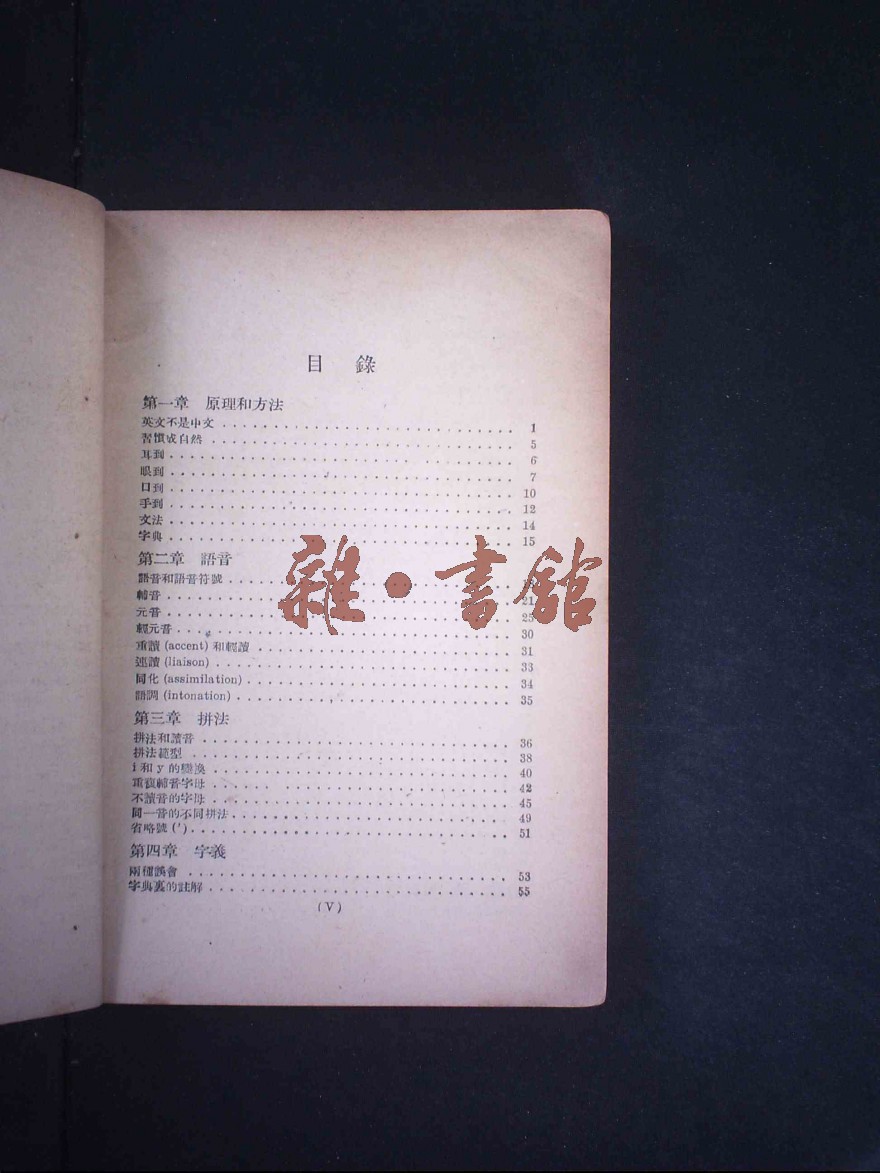 目 錄
第一章 原理和方法
英文不是中文 1
習慣成自然 5
耳到 6
眼到 7
口到 10
手到 12
文法 14
字典 15
第二章 語音
語音和語音符號
輔音 21
元音 25
輕元音 30
重讀 (accent) 和輕讀 31
連讀 (liaison) 33
同化 (assimilation) 34
語調 (intonation) 35
第三章 拼法
拼法和讀音 36
拼法範型 38
i 和 y 的變換 40
重複輔音字母 42
不讀音的字母 45
同一音的不同拼法 49
省略號 (') 51
第四章 字義
兩種誤會 53
字典裏的註解 55
(V)
雜·書館